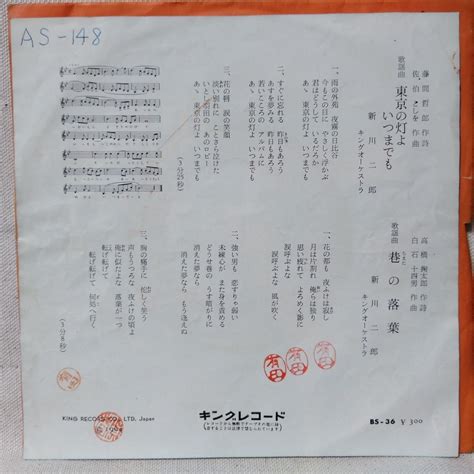 AS-148
藤間哲郎 作詩
佐伯としを 作曲
歌謡曲 東京の灯よいつまでも
新川二郎
キングオーケストラ
一、雨の外苑 夜霧の日比谷
今もこの目に やさしく浮かぶ
君はどうして いるだろか
あゝ 東京の灯よ いつまでも
二、すぐに忘れる 昨日もあろう
あすを夢みる 昨日もあろう
若いこころの アルバムに
あゝ 東京の灯よ いつまでも
三、花の柄 涙の笑顔
淡い別れに ことさら泣けた
いとし羽田の あのロビー
あゝ 東京の灯よ いつまでも
(3分25秒)
高橋掬太郎 作詩
白石十四男 作曲
歌謡曲 巷の落葉
新川二郎
キングオーケストラ
一、花の都も 夜ふけは寂し
月は片割れ 俺らは独り
思い疲れて よろめく影に
涙呼ぶよな 風が吹く
涙呼ぶよな
二、強い男も 恋すりゃ弱い
未練心が また身を責める
どうせ巷の うす明がりに
消えた夢なら もう逢えぬ
消えた夢なら
三、胸の痛手に 忙しく笑う
声もうつろな 夜ふけの頃よ
俺に似たよな 落葉が一つ
転げ転げて 何処へ行く
転げ転げて
(3分8秒)
有田
有田
有田
KING RECORD CO., LTD. Japan
© 1964
キングレコード
BS-36 ¥300